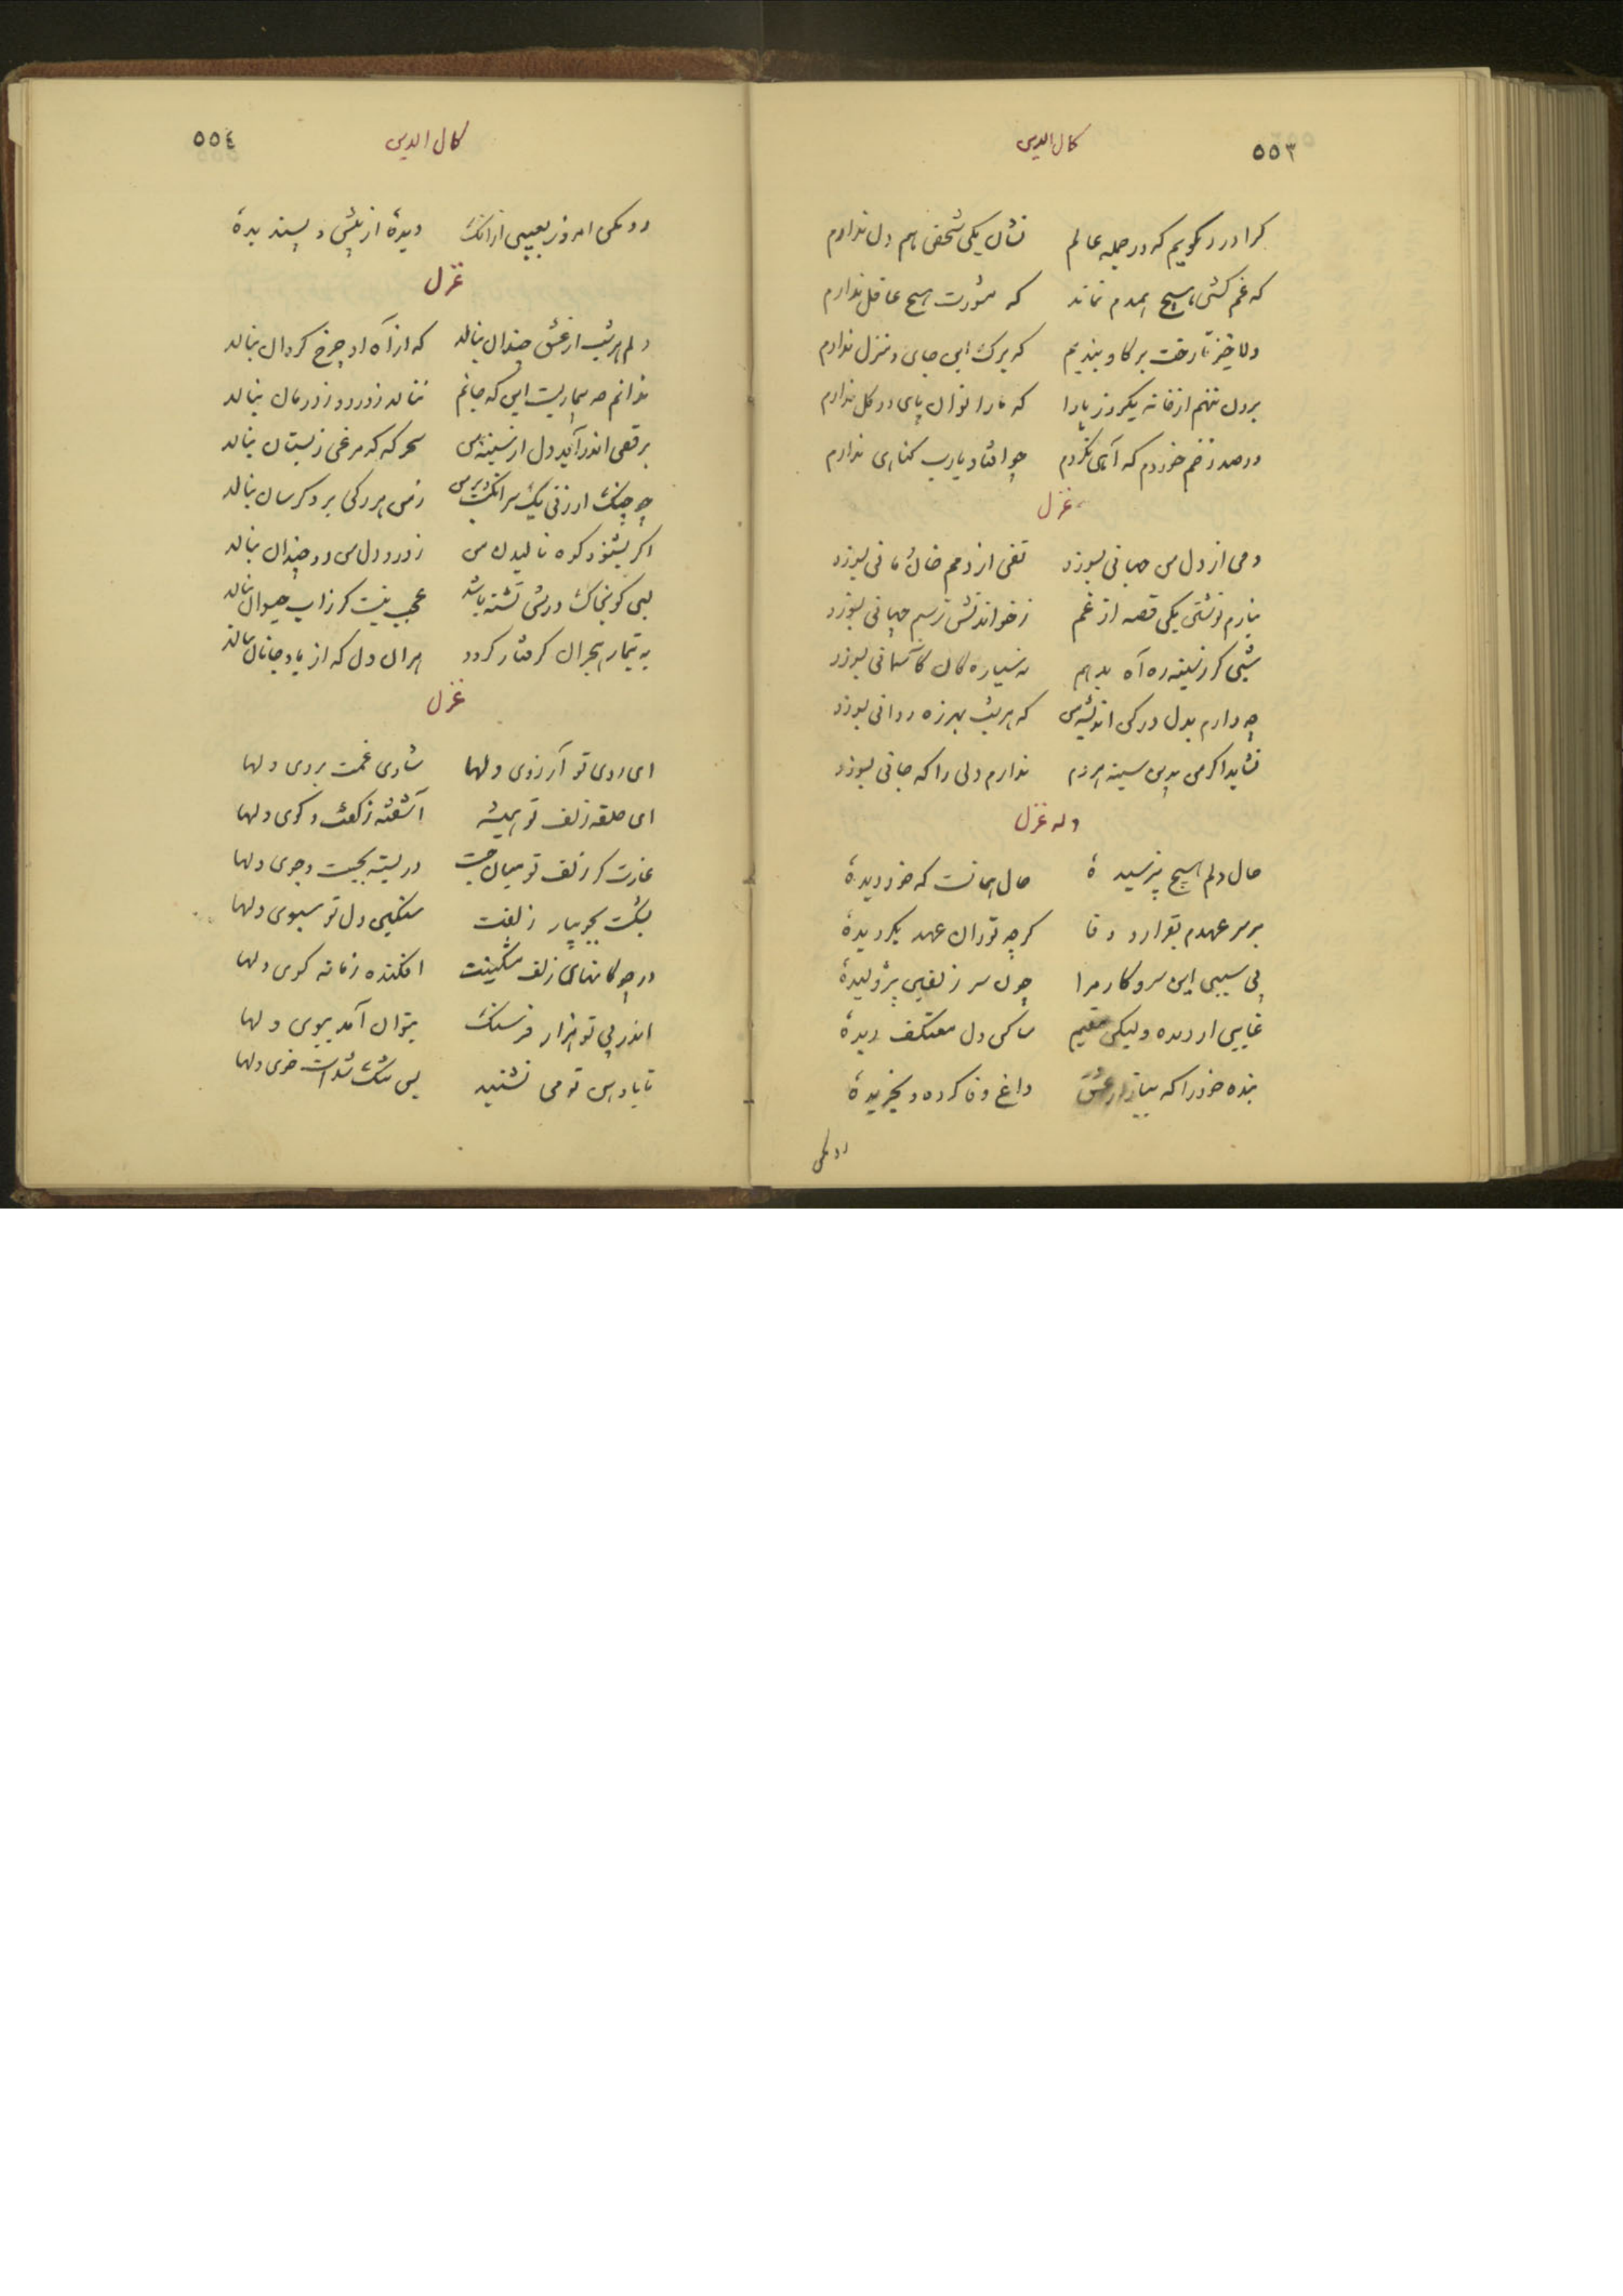 ۵۵۳ کمال الدین
کرا درد گویم که در جمله عالم نشان یکی شخص هم دل ندارم
که غم کشتی هیچ همدم نماند که مشورت هیچ عاقل ندارم
دلا خیز تا رخت بر گاو بندیم که برگ این جای و منزل ندارم
برون ننهم از خانه یکروز پا را که پا را توان پای در گل ندارم
دو صد زخم خوردم که آهی نکردم چو افتاد یارب کناری ندارم
غزل
دمی از دل من جهانی بسوزد تفی از دمم خان و مانی بسوزد
نیارم نوشتن یکی قصه از غم ز خواندنش ترسم جهانی بسوزد
شبی کز سینه ره آه بدهم نه سیاره کان آسمانی بسوزد
چه دارم بدل در کی اندیشه من که هر شب بهرزه روانی بسوزد
نشاید اگر من بدین سینه هردم ندارم دلی را که جانی بسوزد
وله غزل
حال دلم هیچ نپرسیدهٔ حال همانست که خود دیدهٔ
بر سر عهدم بقرار و وفا گرچه تو زان عهد بگردیدهٔ
بی سببی این سر و کار مرا چون سر زلفین پژولیدهٔ
غایبی از دیده ولیکن مقیم ساکن دل معتکف دیدهٔ
بنده خود را که ببازار عشق داغ وفا کرده و بخریدهٔ
رد مکن
کمال الدین ۵۵٤
رد مکن امروز بعیبی از آنک دیدهٔ از پیش و پسندیدهٔ
غزل
دلم هر شب از عشق چندان بنالد که از آه او چرخ گردان بنالد
ندانم چه بیماریست این که جانم ننالد ز درد و ز درمان بنالد
برقص اندر آید دل از سینه من سحرگه که مرغی ز بستان بنالد
چو چنگ ار زنی یک سر انگشت بر من ز من هر رگی بر دگرسان بنالد
اگر بشنود کوه نالیدن من ز درد دل من دو چندان بنالد
لبی کو بخاک درش تشنه باشد عجب نیست کز آب حیوان بنالد
به تیمار هجران گرفتار گردد هر آن دل که از یاد جانان بنالد
غزل
ای روی تو آرزوی دلها شادی غمت بروی دلها
ای حلقه زلف تو همیشه آشفته ز گفت و گوی دلها
غارت گر زلف تو میان چست در بسته بجست و جوی دلها
بشکست بجویبار زلفت سنگین دل تو سبوی دلها
در چوگانهای زلف مشکینت افکنده زمانه گوی دلها
اندر پی تو هزار فرسنگ بتوان آمد ببوی دلها
تا با دهن تو می نشیند بس تنگ شداست خوی دلها